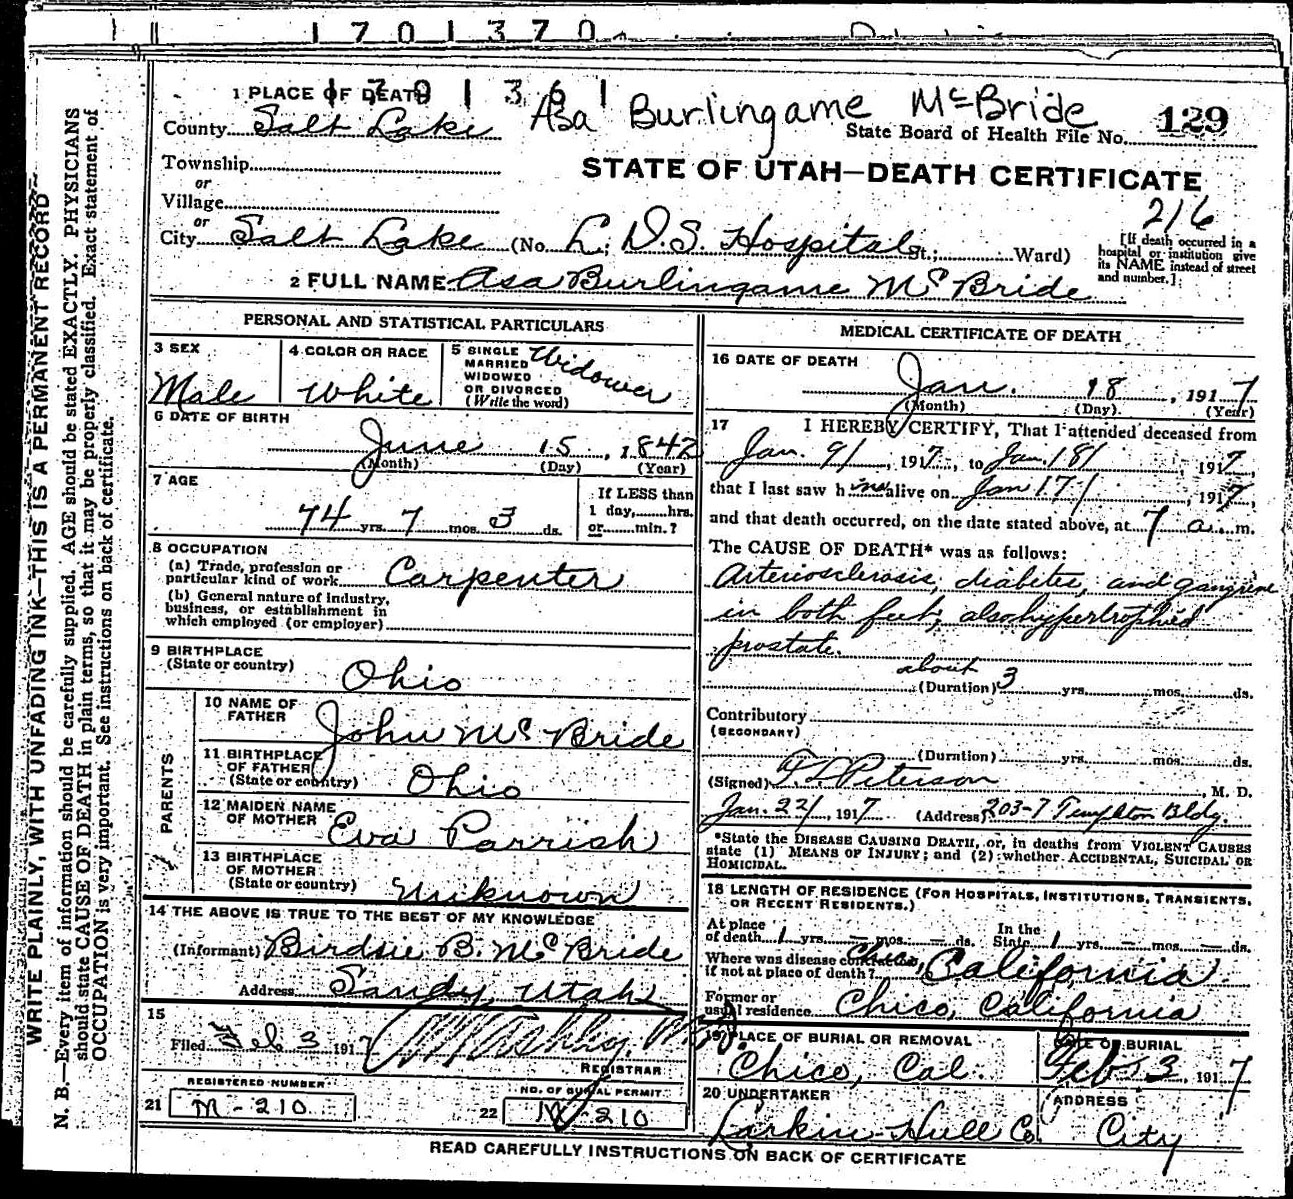 1701370
1 PLACE OF DEATH 1701361
Asa Burlingame McBride
County Salt Lake
State Board of Health File No. 129
Township
or
Village
or
STATE OF UTAH—DEATH CERTIFICATE
216
City Salt Lake (No. L. D. S. Hospital St.; Ward)
[If death occurred in a
hospital or institution give
its NAME instead of street
and number.]
2 FULL NAME Asa Burlingame McBride
PERSONAL AND STATISTICAL PARTICULARS
3 SEX
Male
4 COLOR OR RACE
White
5 SINGLE
MARRIED
WIDOWED
OR DIVORCED
(Write the word)
Widower
6 DATE OF BIRTH
June 15, 1842
(Month) (Day) (Year)
7 AGE
74 yrs. 7 mos. 3 ds.
If LESS than
1 day, hrs.
or min.?
8 OCCUPATION
(a) Trade, profession or
particular kind of work Carpenter
(b) General nature of industry,
business, or establishment in
which employed (or employer)
9 BIRTHPLACE
(State or country)
Ohio
PARENTS
10 NAME OF
FATHER
John McBride
11 BIRTHPLACE
OF FATHER
(State or country) Ohio
12 MAIDEN NAME
OF MOTHER
Eva Parrish
13 BIRTHPLACE
OF MOTHER
(State or country) Unknown
14 THE ABOVE IS TRUE TO THE BEST OF MY KNOWLEDGE
(Informant) Birdsie B. McBride
Address Sandy, Utah
15
Filed Feb 3 1917
REGISTRAR
REGISTERED NUMBER
21 M-210
NO. OF BURIAL PERMIT
22 M 210
MEDICAL CERTIFICATE OF DEATH
16 DATE OF DEATH
Jan. 18, 1917
(Month) (Day) (Year)
17 I HEREBY CERTIFY, That I attended deceased from
Jan 9/, 1917, to Jan. 18/, 1917,
that I last saw him alive on Jan 17/, 1917,
and that death occurred, on the date stated above, at 7 a. m.
The CAUSE OF DEATH* was as follows:
Arteriosclerosis, diabetes, and gangrene
in both feet, also hypertrophied
prostate.
about
(Duration) 3 yrs. mos. ds.
Contributory
(SECONDARY)
(Duration) yrs. mos. ds.
(Signed) Peterson, M. D.
Jan. 22/, 1917 (Address) 203-7 Templeton Bldg.
*State the DISEASE CAUSING DEATH, or, in deaths from VIOLENT CAUSES
state (1) MEANS OF INJURY; and (2) whether ACCIDENTAL, SUICIDAL OR
HOMICIDAL.
18 LENGTH OF RESIDENCE (FOR HOSPITALS, INSTITUTIONS, TRANSIENTS,
OR RECENT RESIDENTS.)
At place
of death 1 yrs. — mos. — ds.
In the
State 1 yrs. — mos. — ds.
Where was disease contracted,
if not at place of death? Chico, California
Former or
usual residence Chico, California
19 PLACE OF BURIAL OR REMOVAL
Chico, Cal.
DATE OF BURIAL
Feb. 3, 1917
20 UNDERTAKER
Larkin-Hull Co.
ADDRESS
City
READ CAREFULLY INSTRUCTIONS ON BACK OF CERTIFICATE
WRITE PLAINLY, WITH UNFADING INK—THIS IS A PERMANENT RECORD
N. B.—Every item of information should be carefully supplied. AGE should be stated EXACTLY. PHYSICIANS
should state CAUSE OF DEATH in plain terms, so that it may be properly classified. Exact statement of
OCCUPATION is very important. See instructions on back of certificate.